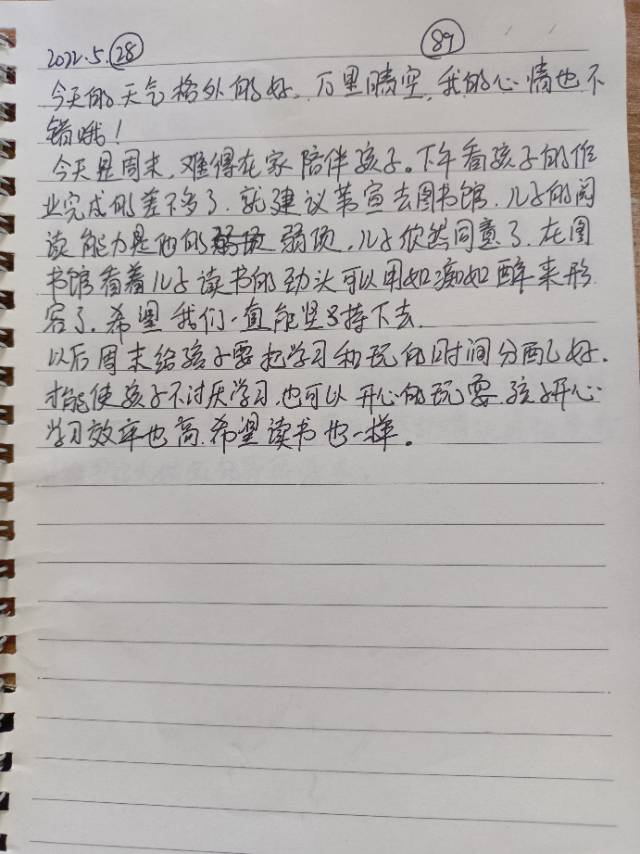 2022.5.28 89
今天的天气格外的好。万里晴空，我的心情也不
错哦！
今天是周末，难得在家陪伴孩子。下午看孩子的作
业完成的差不多了，就建议第宣去图书馆，儿子的阅
读能力是他的弱项，儿子欣然同意了，在图
书馆看着儿子读书的劲头可以用如痴如醉来形
容了，希望我们一直能坚持下去，
以后周末给孩子要把学习和玩的时间分配好，
才能使孩子不讨厌学习，也可以开心的玩耍，孩子开心
学习效率也高，希望读书也一样。